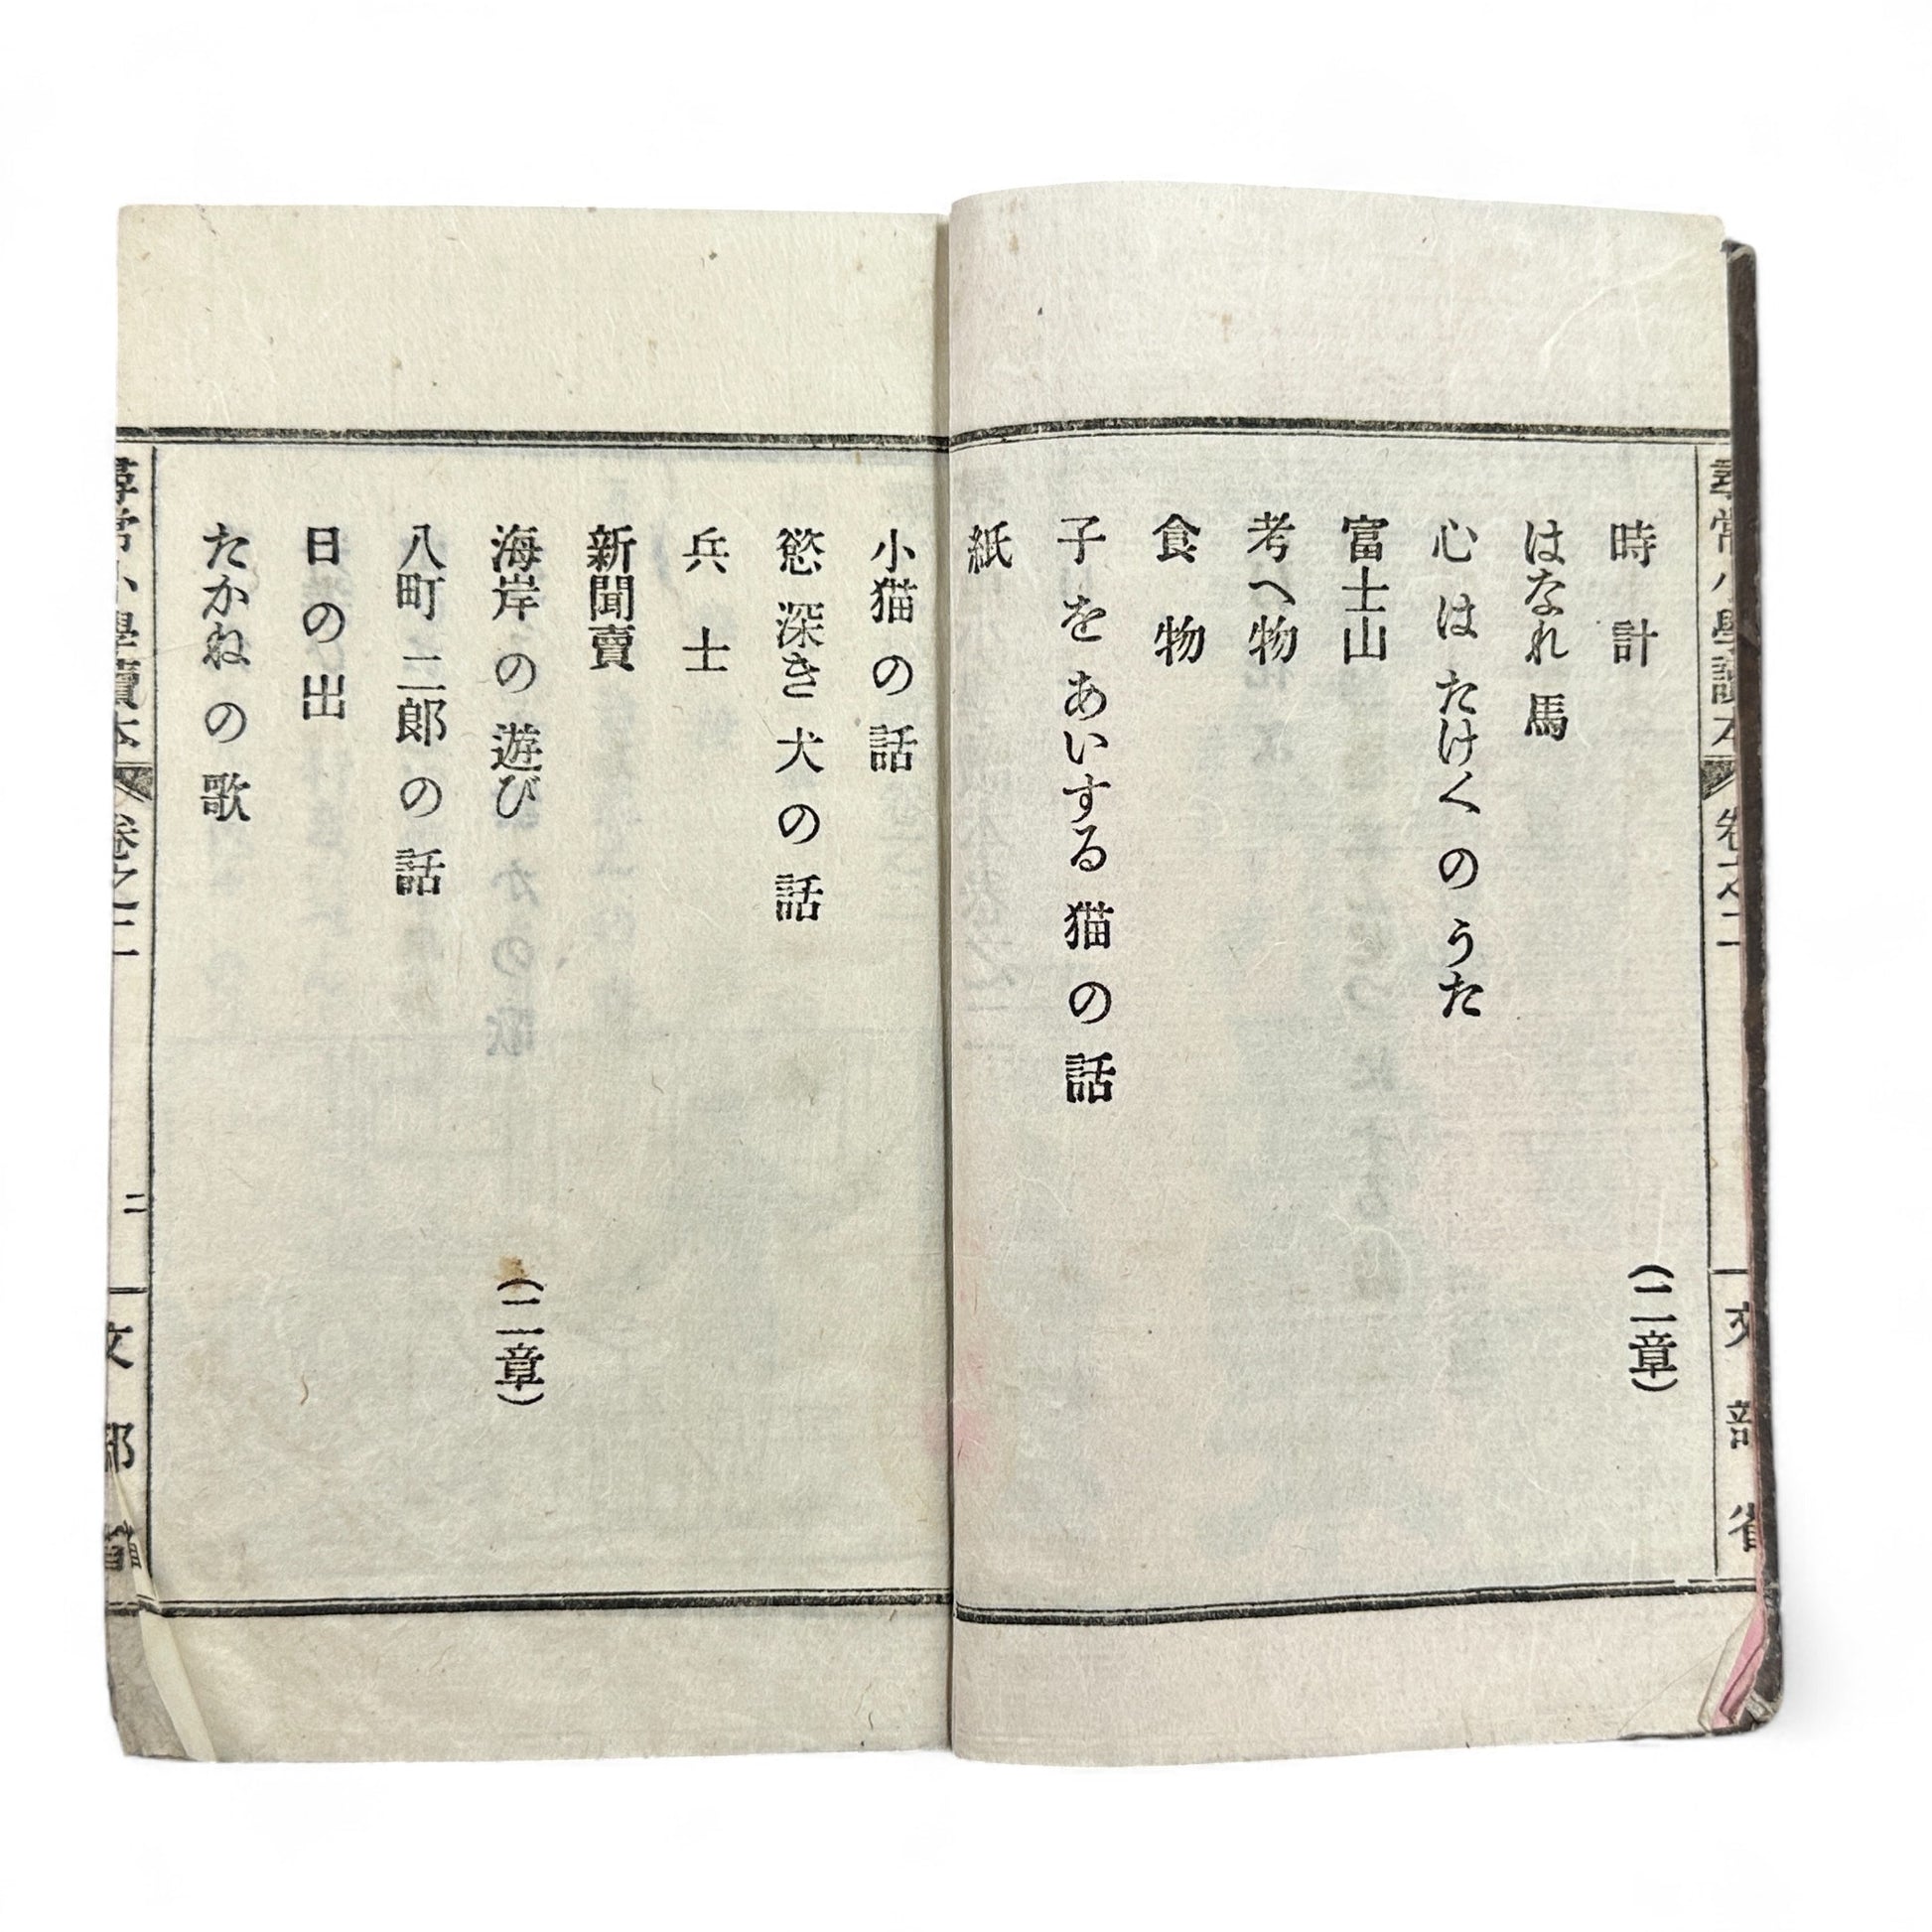 尋常小學讀本
卷之二
文部省
時計
(二章)
はなれ馬
心はたけくのうた
富士山
考へ物
食物
子をあいする猫の話
紙
小猫の話
慾深き犬の話
兵士
新聞賣
海岸の遊び
(二章)
八町二郎の話
日の出
たかねの歌
尋常小學讀本
卷之二
二
文部省